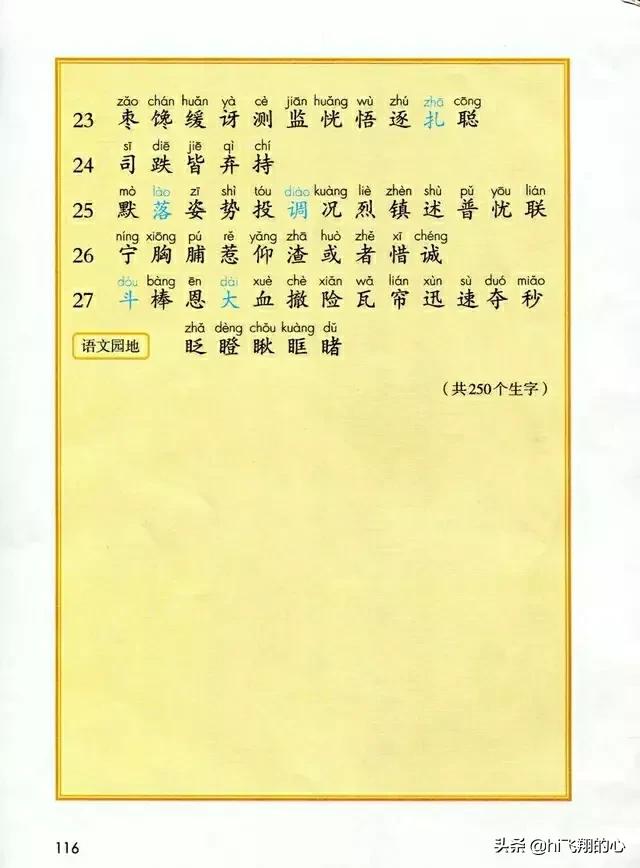 zǎo chán huǎn yà cè jiān huǎng wù zhú zhā cōng
23 枣 馋 缓 讶 测 监 恍 悟 逐 扎 聪
sī diē jiē qì chí
24 司 跌 皆 弃 持
mò lào zī shì tóu diào kuàng liè zhèn shù pǔ yōu lián
25 默 落 姿 势 投 调 况 烈 镇 述 普 忧 联
níng xiōng pú rě yǎng zhā huò zhě xī chéng
26 宁 胸 脯 惹 仰 渣 或 者 惜 诚
dǒu bàng ēn dài xuè chè xiǎn wǎ lián xùn sù duó miǎo
27 斗 棒 恩 大 血 撤 险 瓦 帘 迅 速 夺 秒
zhǎ dèng chǒu kuàng dǔ
语文园地 眨 瞪 瞅 眶 睹
（共250个生字）
116
头条 @hi飞翔的心